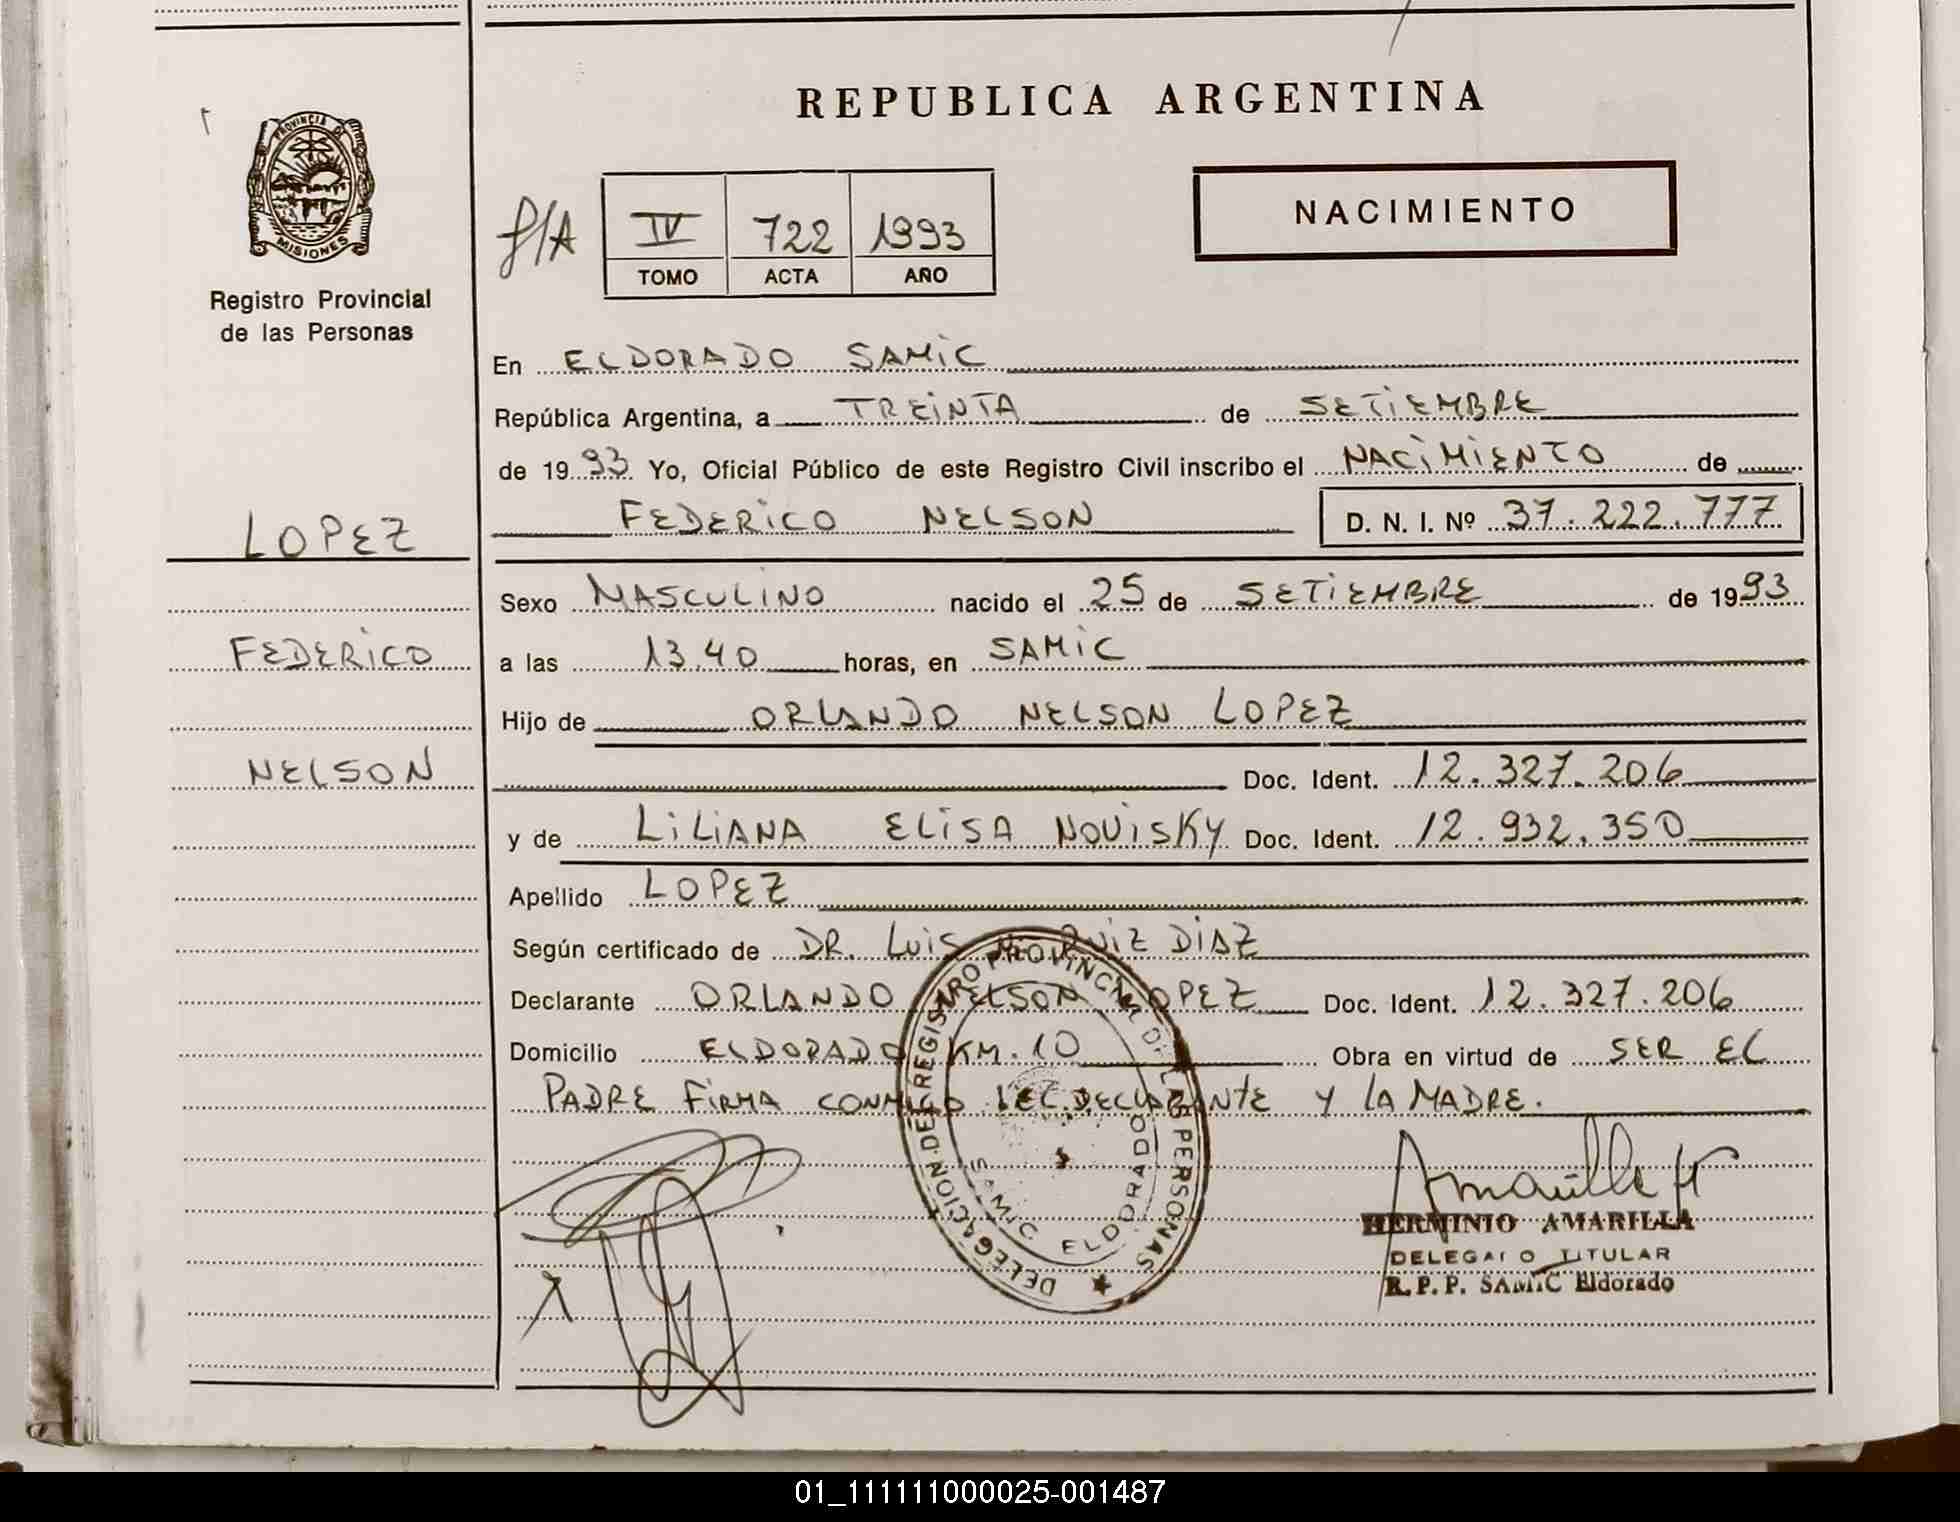 REPUBLICA ARGENTINA
PROVINCIA DE
MISIONES
Registro Provincial
de las Personas
f/A
IV 722 1993
TOMO ACTA AÑO
NACIMIENTO
En ELDORADO SAMiC
República Argentina, a TREiNTA de SETiEMBRE
de 1993 Yo, Oficial Público de este Registro Civil inscribo el NACiMiENTO de
FEDERiCO NELSON D. N. I. Nº 37.222.777
LOPEZ
FEDERiCO
NELSON
Sexo MASCULiNO nacido el 25 de SETiEMBRE de 1993
a las 13.40 horas, en SAMiC
Hijo de ORLANDO NELSON LOPEZ
Doc. Ident. 12.327.206
y de LiLiANA ELiSA NOUiSKY Doc. Ident. 12.932.350
Apellido LOPEZ
Según certificado de DR. LUiS RUiZ DiAZ
Declarante ORLANDO NELSON LOPEZ Doc. Ident. 12.327.206
Domicilio ELDORADO KM.10 Obra en virtud de SER EL
PADRE FiRMA CONMiGO EL DECLARANTE Y LA MADRE.
DELEGACION DEL REGISTRO PROVINCIAL DE LAS PERSONAS
SAMIC ELDORADO
Amarilla H
HERMINIO AMARILLA
DELEGADO TITULAR
R.P.P. SAMIC Eldorado
01_111111000025-001487